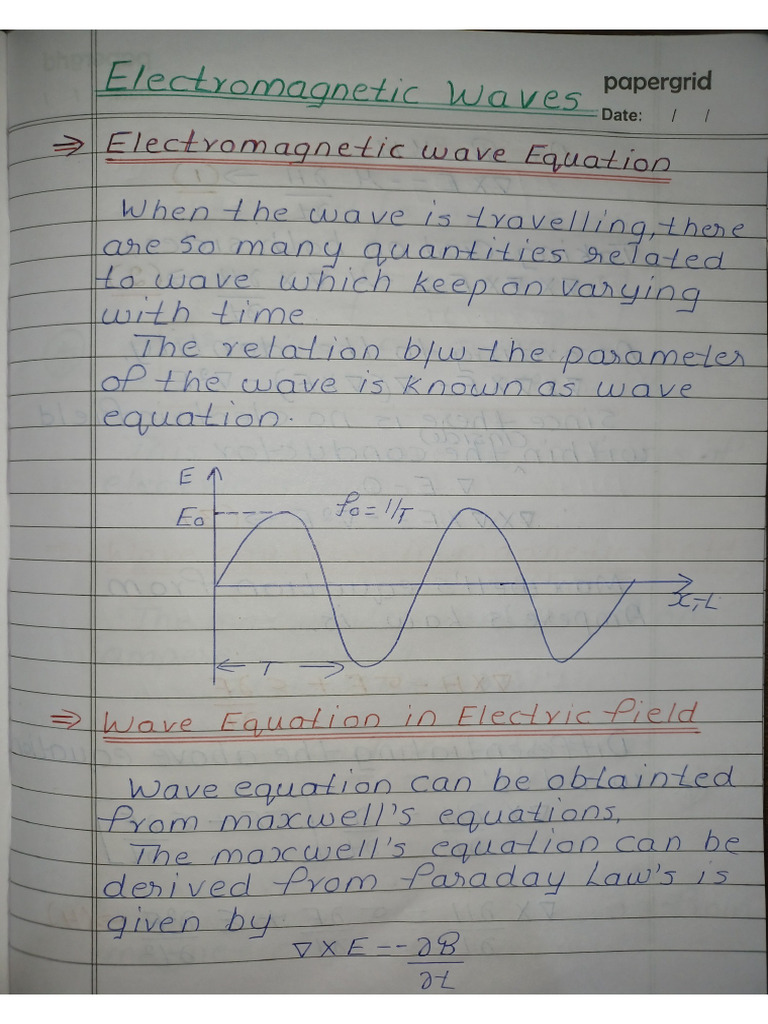 Electromagnetic Waves
papergrid
Date: / /
⇒ Electromagnetic wave Equation
When the wave is travelling, there
are so many quantities related
to wave which keep on varying
with time
The relation b/w the parameter
of the wave is known as wave
equation.
E
E₀
f₀ = 1/T
x, t
T
⇒ Wave Equation in Electric field
Wave equation can be oblainted
from maxwell's equations,
The maxwell's equation can be
derived from faraday Law's is
given by
∇ × E = -∂B/∂t